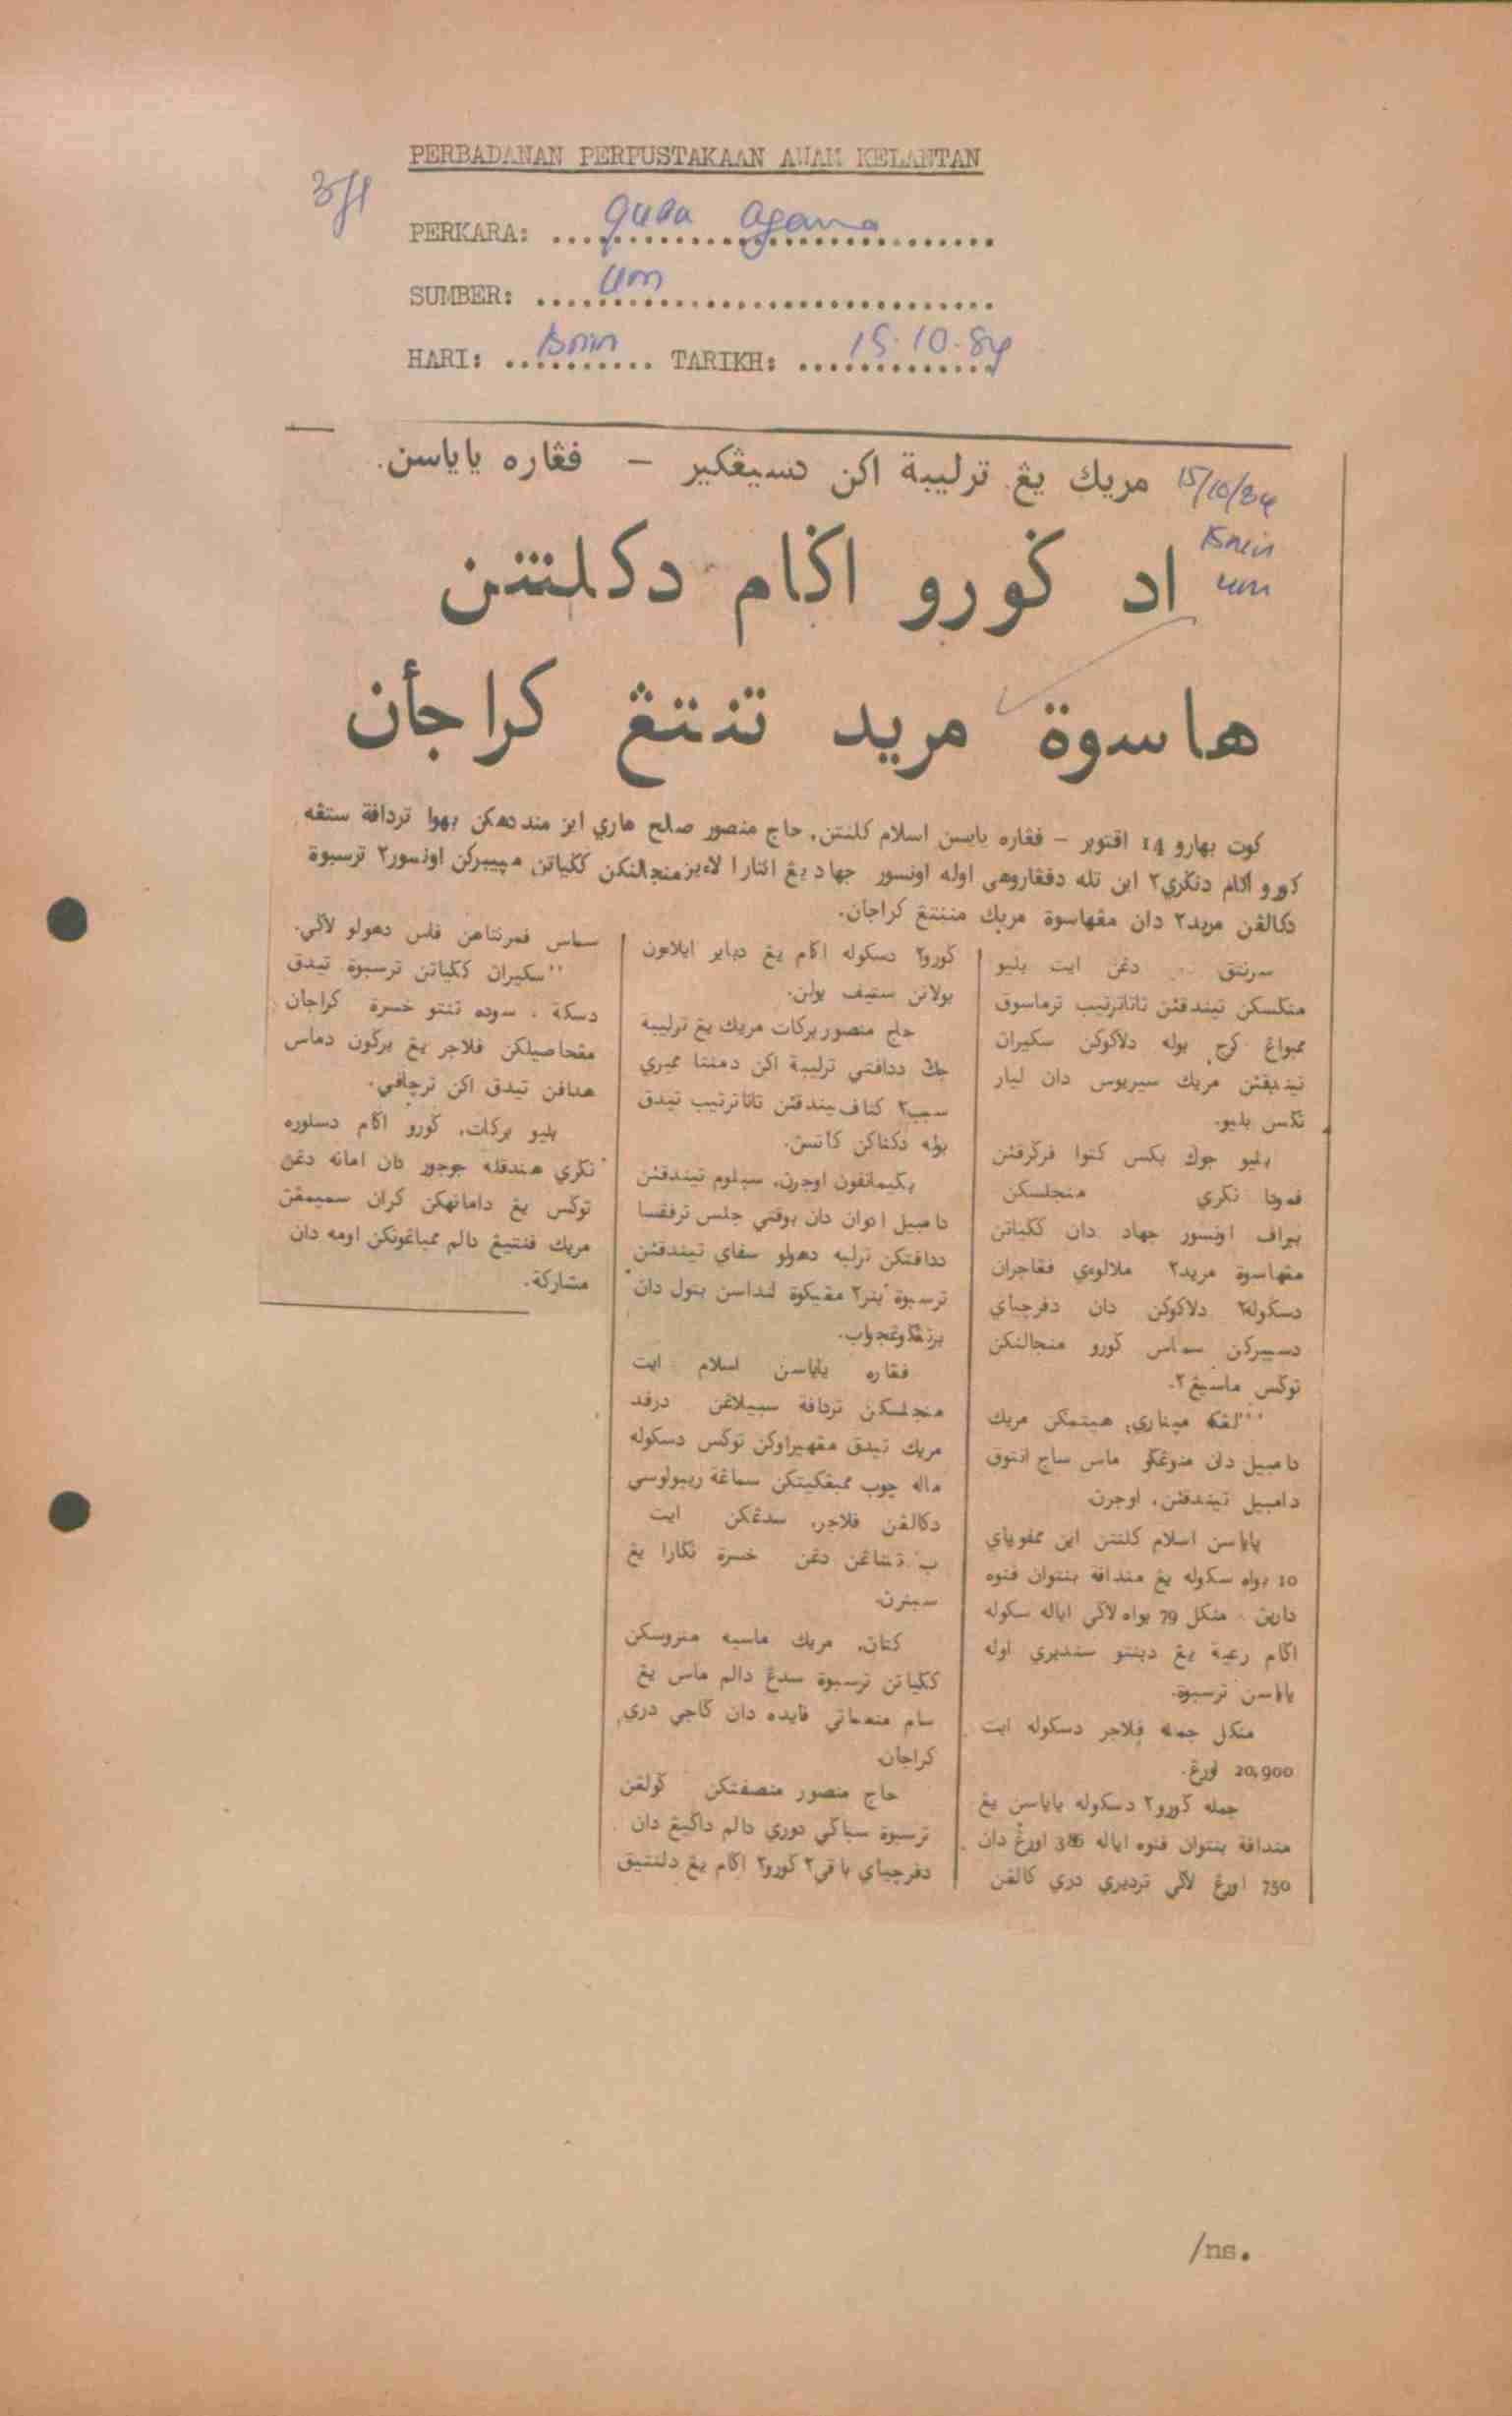 PERBADANAN PERPUSTAKAAN AWAM KELANTAN
PERKARA: Guru Agama
SUMBER: UM
HARI: Isnin TARIKH: 15.10.84
15/10/84
Isnin
UM
مريك يڠ ترليبة اکن دسيڠکير – ڤڠاره ياياسن.
اد ݢورو اݢام دکلنتن
هاسوة مريد تنتڠ کراجأن
کوت بهارو 14 اقتوبر – ڤڠاره ياياسن اسلام کلنتن، حاج منصور صلح هاري اين مندد هکن بهوا تردافة ستڠه
ݢورو اݢام دنݢري٢ اين تله دڤڠاروهي اوله اونسور جهاد يڠ انتارا لاءين منجالنکن کݢياتن مپيبرکن اونسور٢ ترسبوة
دکالڠن مريد٢ دان مڠهاسوة مريك مننتڠ کراجأن.
سرنتق دڠن ايت بليو
منکسکن تيندقن تاتاترتيب ترماسوق
ممبواڠ کرج بوله دلاکوکن سکيران
تيندقن مريك سيريوس دان ليار
تݢس بليو.
بليو جوݢ بکس کتوا ڤرݢرقن
ڤمودا نݢري منجلسکن
بيراڤ اونسور جهاد دان کݢياتن
مڠهاسوة مريد٢ ملالوءي ڤڠاجران
دسکوله٢ دلاکوکن دان دڤرچياءي
دسيبرکن سماس ݢورو منجالنکن
توݢس ماسيڠ٢.
''لڠکه مپناري، هيتمکن مريك
دامبيل دان منوڠݢو ماس ساج انتوق
دامبيل تيندقن، اوجرڽ
ياياسن اسلام کلنتن اين ممڤوپاءي
10 بواه سکوله يڠ مندافة بنتوان ڤنوه
دارين . منکل 79 بواه لاݢي اياله سکوله
اݢام رعية يڠ دبنتو سنديري اوله
ياياسن ترسبوة.
منکل جمله ڤلاجر دسکوله ايت
20,900 اورڠ.
جمله ݢورو٢ دسکوله ياياسن يڠ
مندافة بنتوان ڤنوه اياله 386 اورڠ دان
750 اورڠ لاݢي ترديري دري کالڠن
ݢورو٢ دسکوله اݢام يڠ دباير ايلاءون
بولانن ستيڤ بولن.
حاج منصور برکات مريك يڠ ترليبة
جݢ ددافتي ترليبة اکن دمنتا ممبري
سبب٢ کناڤ تيندقن تاتاترتيب تيدق
بوله دکناکن کاتسڽ.
بݢيمانڤون اوجرڽ، سبلوم تيندقن
دامبيل ادوان دان بوقتي جلس ترڤقسا
ددافتکن ترليه دهولو سڤاي تيندقن
ترسبوة بنر٢ مڠيکوة لنداسن بتول دان
برتڠݢوڠجواب.
ڤڠاره ياياسن اسلام ايت
منجلسکن تردافة سبيلاڠن درڤد
مريك تيدق مڠهيراوکن توݢس دسکوله
ماله چوب ممبڠکيتکن سماڠة ريبولوسي
دکالڠن ڤلاجر، سدڠکن ايت
ب تنتاڠن دڠن حسرة نݢارا يڠ
سبنرڽ
کتاڽ، مريك ماسيه منروسکن
کݢياتن ترسبوة سدڠ دالم ماس يڠ
سام منعماتي ڤايده دان ݢاجي دري
کراجأن
حاج منصور منصفتکن ݢولڠن
ترسبوة سباݢي دوري دالم داݢيڠ دان
دڤرچياءي باقي٢ ݢورو٢ اݢام يڠ دلنتيق
سماس ڤمرنتاهن ڤاس دهولو لاݢي.
''سکيران کݢياتن ترسبوة تيدق
دسکة ، سوده تنتو حسرة کراجأن
مڠحاصيلکن ڤلاجر يڠ برݢون دماس
هداڤن تيدق اکن ترچاڤي.
بليو برکات، ݢورو اݢام دسلوره
نݢري هندقله جوجور دان امانه دڠن
توݢس يڠ دامانهکن کران سميمڠن
مريك ڤنتيڠ دالم ممباڠونکن اومه دان
مشارکة.
/ns.